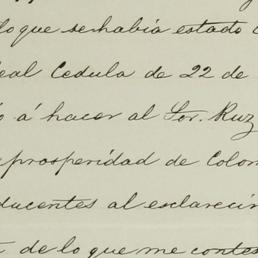 lo que se habia estado
eal Cedula de 22 de
ó á hacer al Sor. Ruz
prosperidad de Colon
ducentes al esclareci
de lo que me contes